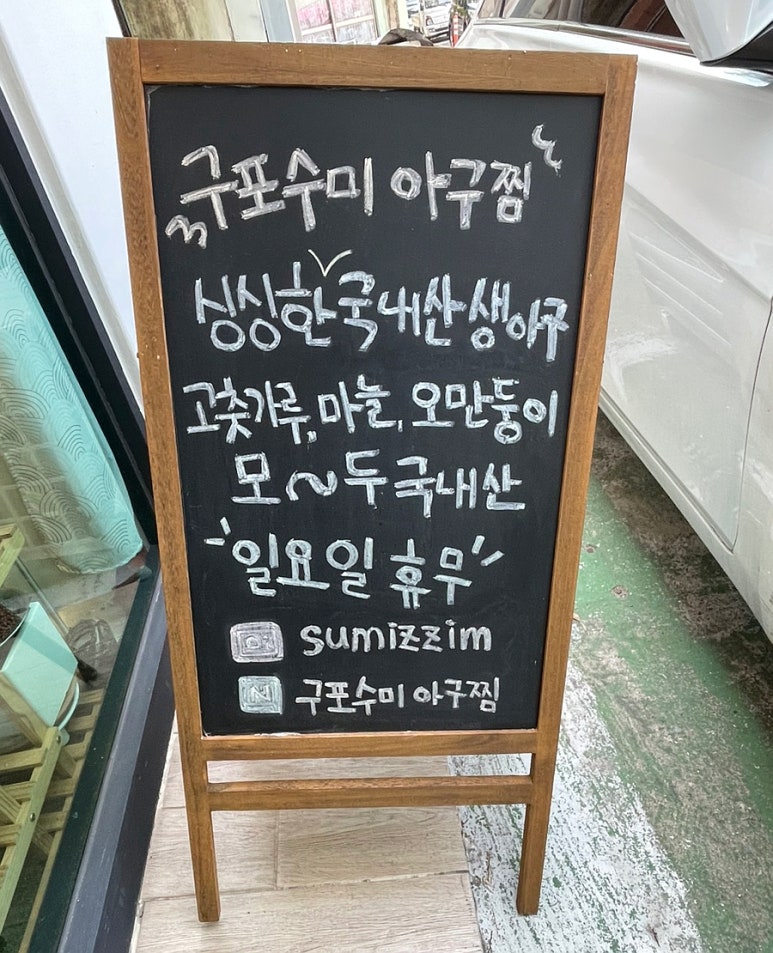 구포수미 아구찜
싱싱한 국내산 생아구
고춧가루, 마늘, 오만둥이
모~두 국내산
일요일 휴무
sumizzim
N 구포수미 아구찜